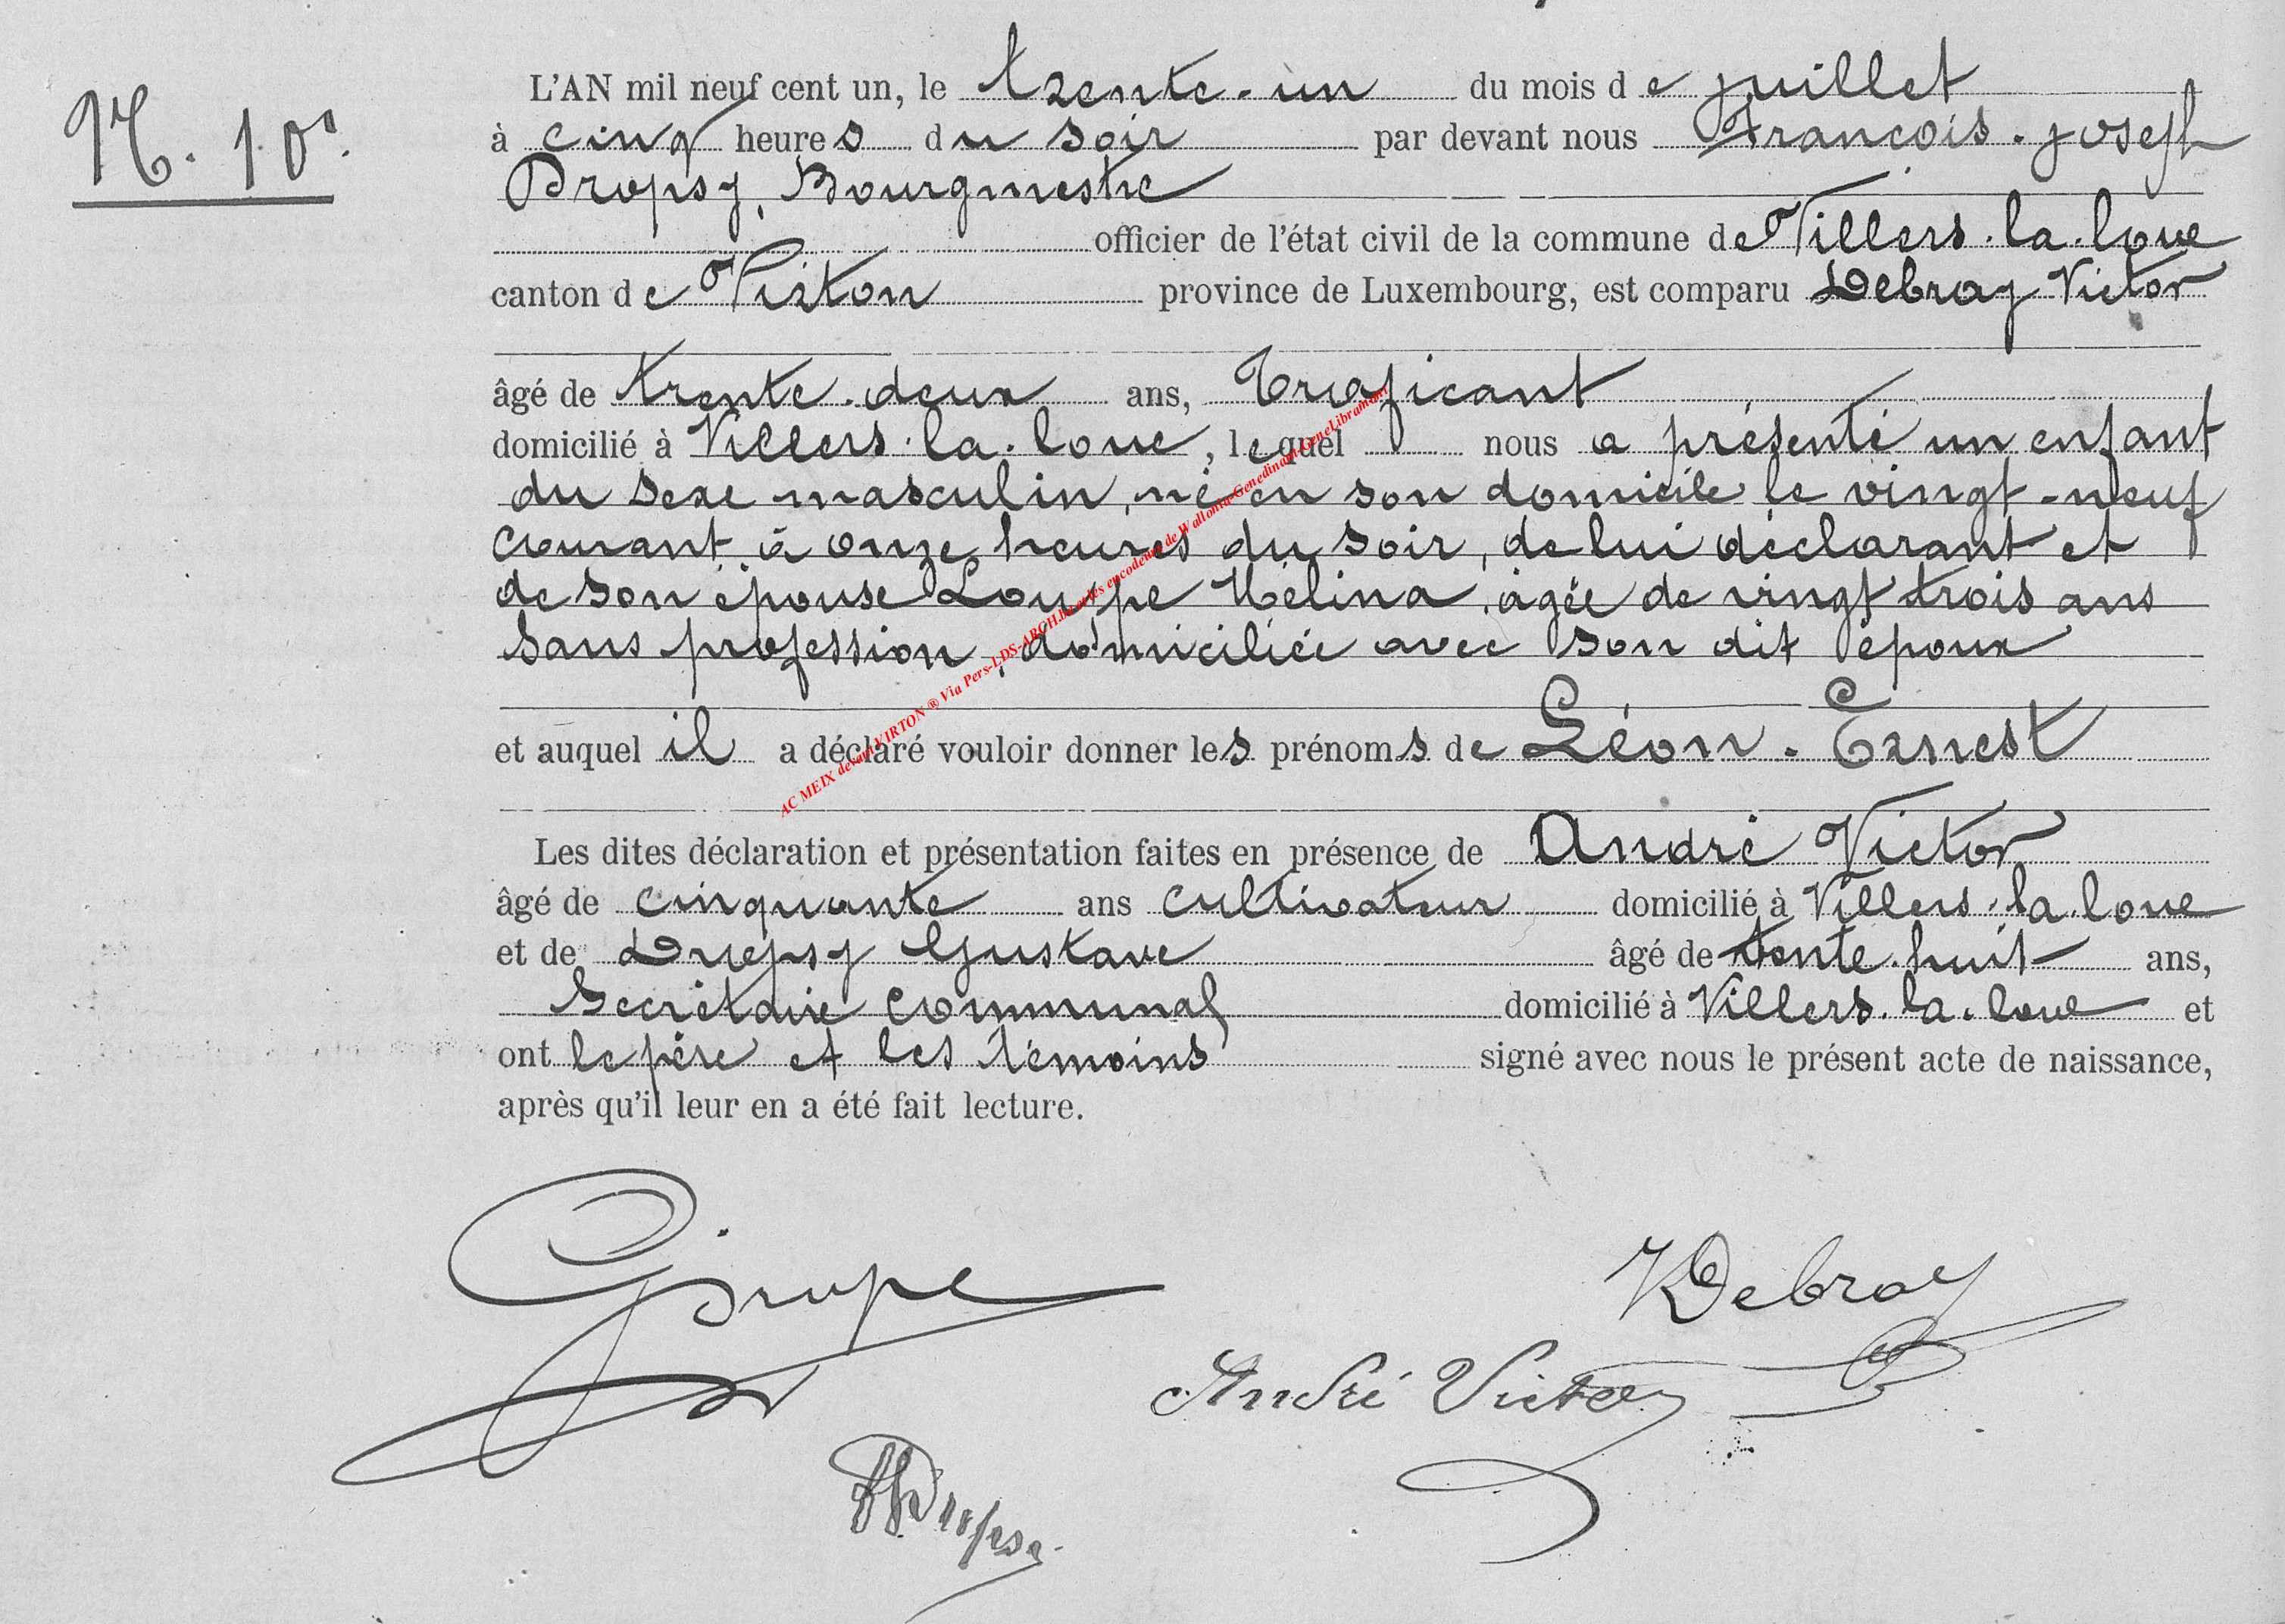 N. 10.
L'AN mil neuf cent un, le trente-un du mois de juillet
à cinq heures du soir par devant nous François-Joseph
Dropsy, Bourgmestre
officier de l'état civil de la commune de Villers-la-loue
canton de Virton province de Luxembourg, est comparu Debray Victor
âgé de trente-deux ans, Traficant
domicilié à Villers-la-loue, lequel nous a présenté un enfant
du sexe masculin, né en son domicile le vingt-neuf
courant à onze heures du soir, de lui déclarant et
de son épouse Louppe Mélina, âgée de vingt trois ans
sans profession, domiciliée avec son dit époux
et auquel il a déclaré vouloir donner les prénoms de Léon-Ernest
Les dites déclaration et présentation faites en présence de André Victor
âgé de cinquante ans cultivateur domicilié à Villers-la-loue
et de Gustave âgé de trente-huit ans,
Secrétaire communal domicilié à Villers-la-loue et
ont le père et les témoins signé avec nous le présent acte de naissance,
après qu'il leur en a été fait lecture.
VDebray
André Victor
AC MEIX devant VIRTON ® Via Pers-LDS-ARCH